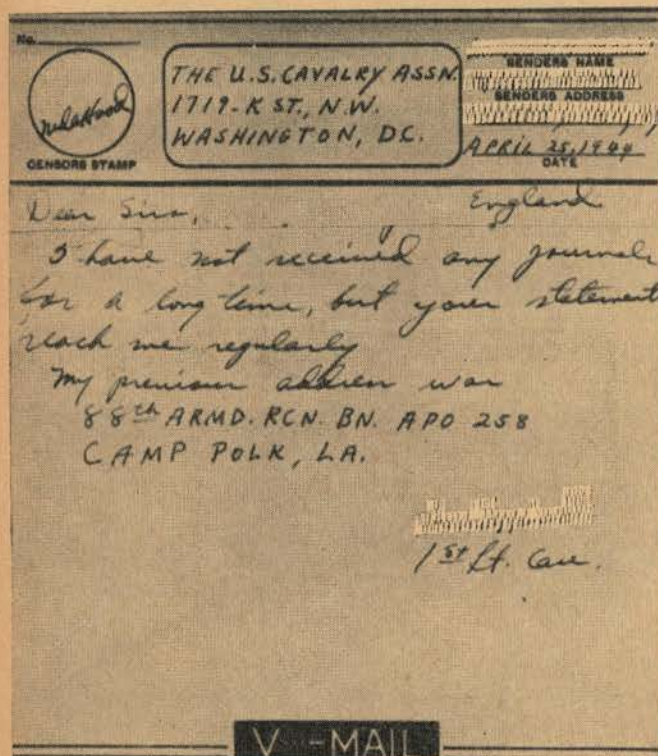 No.
THE U.S. CAVALRY ASSN.
1719-K ST., N.W.
WASHINGTON, D.C.
CENSORS STAMP
SENDERS NAME
SENDERS ADDRESS
APRIL 25, 1944
DATE
England
Dear Sirs,
I have not received any journals
for a long time, but your statements
reach me regularly
My previous address was
88th ARMD. RCN. BN. APO 258
CAMP POLK, LA.
1st Lt. Cav.
V-MAIL